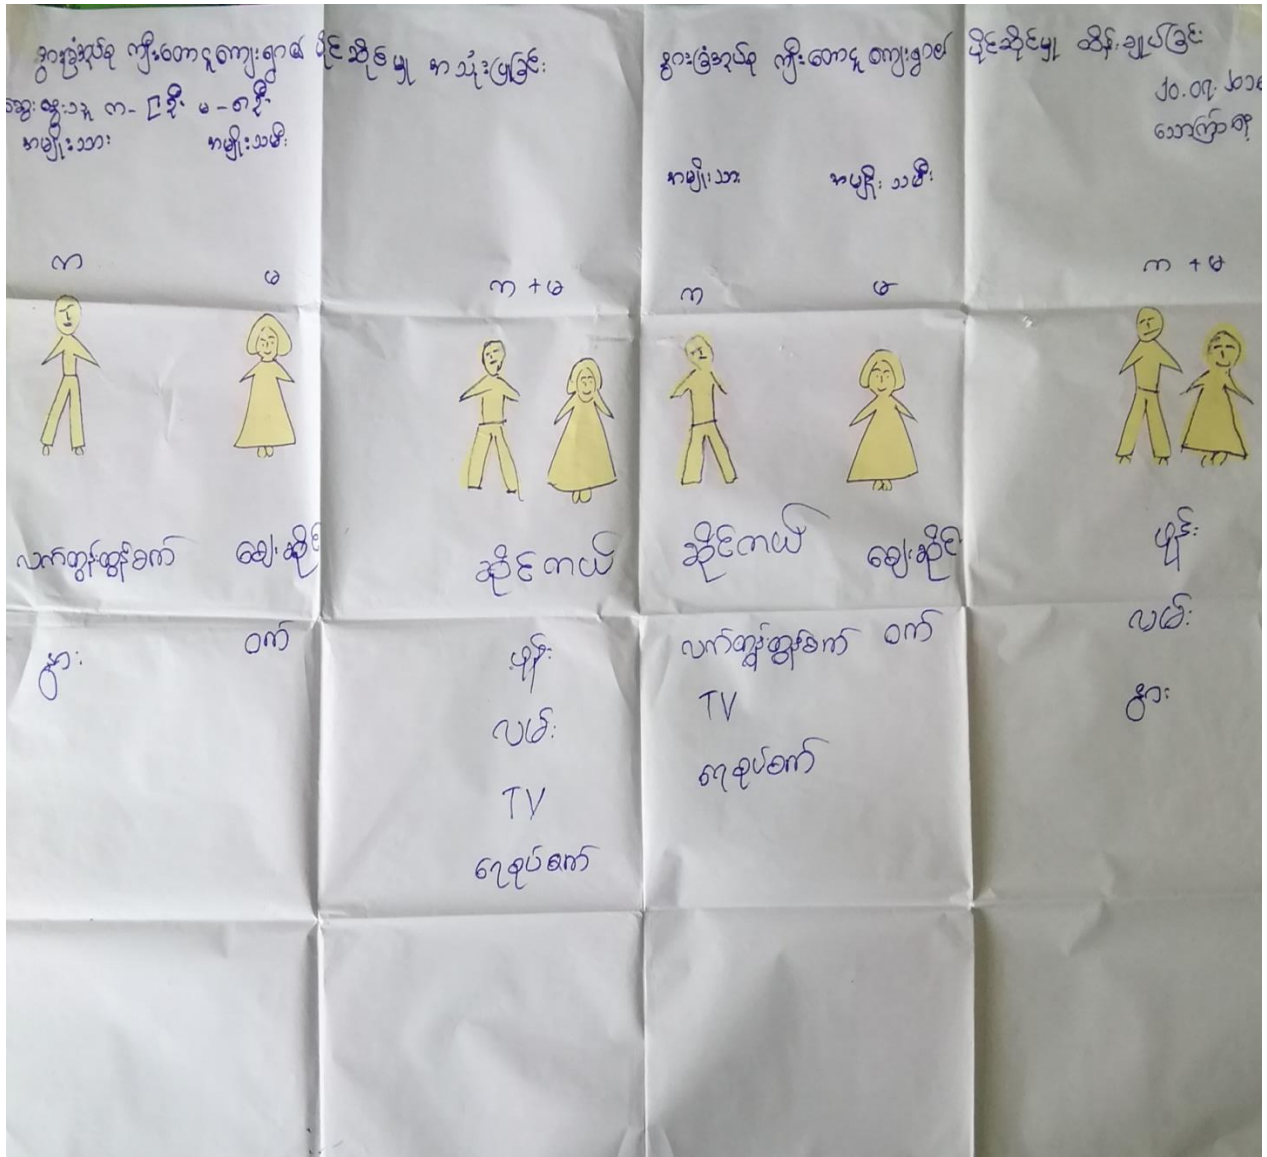 စွားခြံအုပ်စု ကျီးတောင့်ကျေးရွာ၏ ပိုင်ဆိုင်မှု အသုံးပြုခြင်း
ဆွေးနွေးသူ က - ၉ ဦး မ - ၈ ဦး
အမျိုးသား အမျိုးသမီး
က မ က + မ
လက်တွန်းထွန်စက် ဈေးဆိုင် ဆိုင်ကယ်
နွား ဝက် ဖုန်း
လမ်း
TV
ရေစုပ်စက်
ပိုင်ဆိုင်မှု ထိန်းချုပ်ခြင်း
သောကြာနေ့
အမျိုးသား အမျိုးသမီး
က မ က + မ
ဆိုင်ကယ် ဈေးဆိုင် ဖုန်း
လက်တွန်းထွန်စက် ဝက် လမ်း
TV နွား
ရေစုပ်စက်